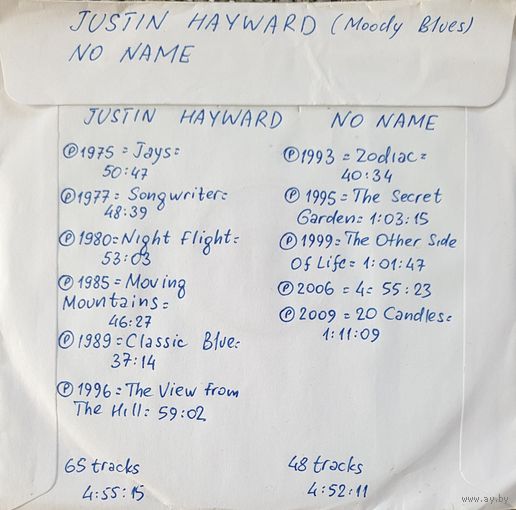 JUSTIN HAYWARD (Moody Blues)
NO NAME
JUSTIN HAYWARD
Ⓟ1975 = Jays=
50:47
Ⓟ1977 = Songwriter=
48:39
Ⓟ1980=Night Flight=
53:03
Ⓟ1985 = Moving
Mountains=
46:27
Ⓟ1989=Classic Blue=
37:14
Ⓟ1996=The View from
The Hill= 59:02
65 tracks
4:55:15
NO NAME
Ⓟ1993 = Zodiac=
40:34
Ⓟ1995=The Secret
Garden= 1:03:15
Ⓟ1999=The Other Side
Of Life= 1:01:47
Ⓟ2006 = 4= 55:23
Ⓟ2009 = 20 Candles=
1:11:09
48 tracks
4:52:11
www.ay.by